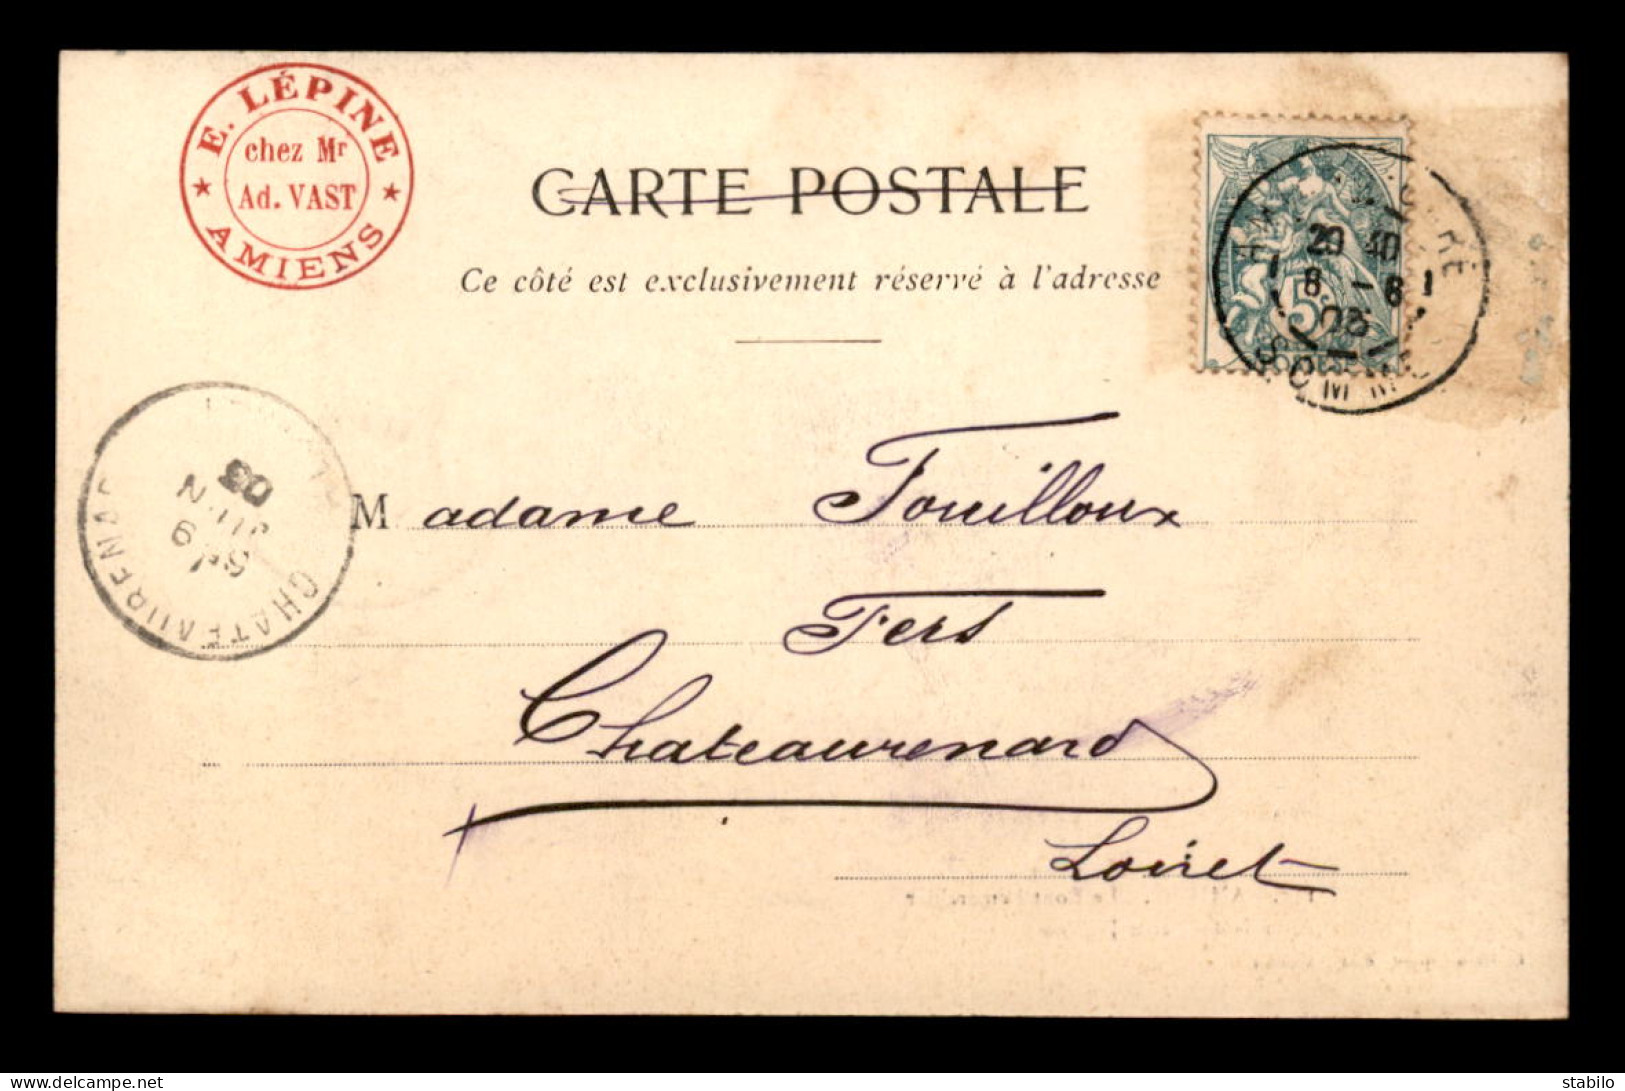 E. LÉPINE
chez Mr
Ad. VAST
★ AMIENS ★
CARTE POSTALE
Ce côté est exclusivement réservé à l'adresse
5c
20 40
8 - 6
03
SOMME
03
JUIN
9
CHATEAURENARD
Madame Fouilloux
Fers
Chateaurenard
Loiret
delcampe.net
stabilo